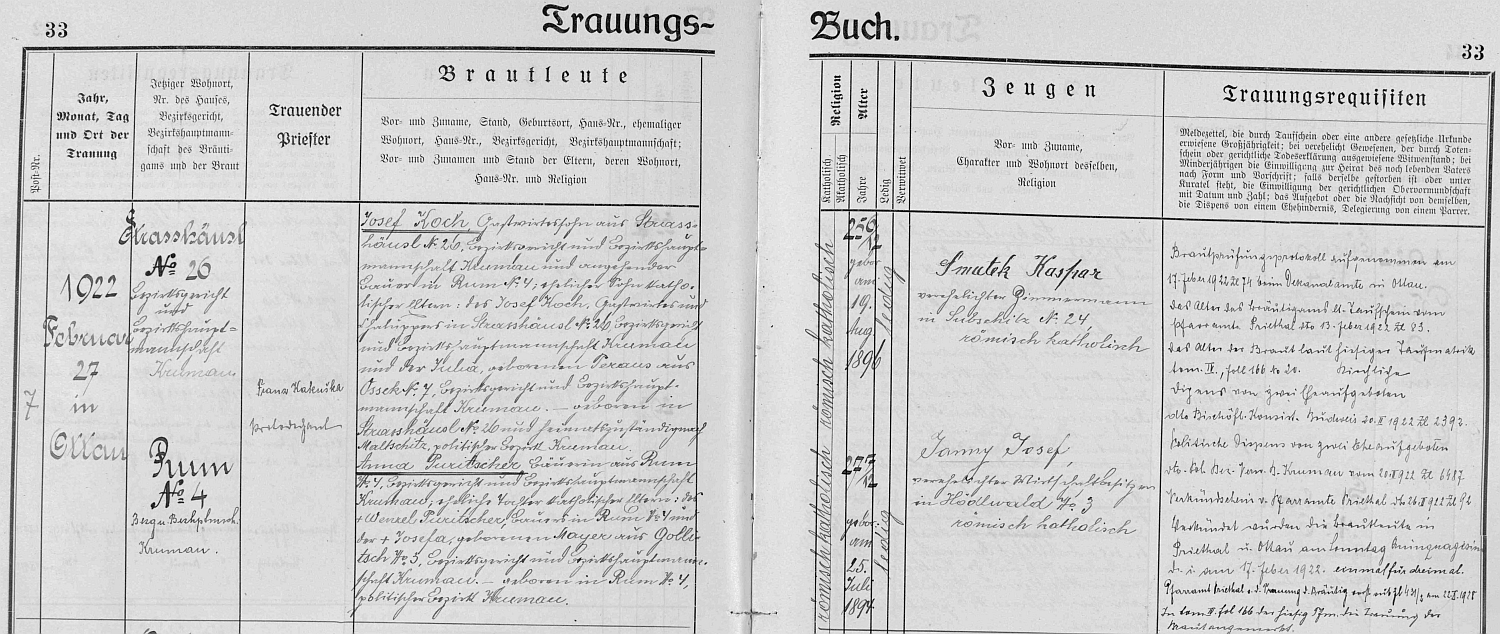 33
Trauungs-
Buch.
33
Post-Nr.
Jahr,
Monat, Tag
und Ort der
Trauung
Jetziger Wohnort,
Nr. des Hauses,
Bezirksgericht,
Bezirkshauptmann-
schaft des Bräuti-
gams und der Braut
Trauender
Priester
Brautleute
Vor- und Zuname, Stand, Geburtsort, Haus-Nr., ehemaliger
Wohnort, Haus-Nr., Bezirksgericht, Bezirkshauptmannschaft;
Vor- und Zunamen und Stand der Eltern, deren Wohnort,
Haus-Nr. und Religion
Religion
Katholisch
Akatholisch
Alter
Jahre
Ledig
Verwitwet
Zeugen
Vor- und Zuname,
Charakter und Wohnort desselben,
Religion
Trauungsrequisiten
Meldezettel, die durch Taufschein oder eine andere gesetzliche Urkunde
erwiesene Großjährigkeit; bei verehelicht Gewesenen, der durch Toten-
schein oder gerichtliche Todeserklärung ausgewiesene Witwenstand; bei
Minderjährigen die Einwilligung zur Heirat des noch lebenden Vaters
nach Form und Vorschrift; falls derselbe gestorben ist oder unter
Kuratel steht, die Einwilligung der gerichtlichen Obervormundschaft
mit Datum und Zahl; das Aufgebot oder die Nachsicht von demselben,
die Dispens von einem Ehehindernis, Delegierung von einem Parrer.
7
1922
Februar
27
in
Ottau
Strasshäusl
No 26
Bezirksgericht
und
Bezirkshaupt=
mannschaft
Krumau
Rum
No 4
Krumau.
Franz Kakuška
Josef Koch, Gastwirtssohn aus Strass=
häusl No 26, Bezirksgericht und Bezirkshaupt=
mannschaft Krumau und angehender
Bauer in Rum No 4, ehelicher Sohn katho=
lischer Eltern: des Josef Koch, Gastwirtes und
Chaluppers in Strasshäusl No 26 Bezirksgericht
und Bezirkshauptmannschaft Krumau
und der Julia, geborenen Peraus aus
Ossek No 7, Bezirksgericht und Bezirkshaupt-
mannschaft Krumau. — geboren in
Strasshäusl No 26 und heimatszuständig nach
Maltschitz, politischer Bezirk Krumau.
Anna Puritscher, Bäuerin aus Rum
No 4, Bezirksgericht und Bezirkshauptmannschaft
Krumau, eheliche Tochter katholischer Eltern: des
+ Wenzel Puritscher, Bauers in Rum No 4 und
der + Josefa, geborenen Mayer aus Golli=
tsch No 5, Bezirksgericht und Bezirkshauptmann=
schaft Krumau. — geboren in Rum No 4,
politischer Bezirk Krumau.
römisch katholisch
römisch katholisch
25 6/12
gebor.
am
19.
Aug.
1896
ledig
27 7/12
gebor.
am
25.
Juli
1894
ledig
Smutek Kaspar
verehelichter Zimmermann
in Subschitz No 24,
römisch katholisch
Janny Josef,
verehelichter Wirtschaftsbesitzer
in Hödlwald No 3
römisch katholisch
Brautprüfungsprotokoll aufgenommen am
17. Feber 1922 Zl 74 beim Dekanalamte in Ottau.
Das Alter des Bräutigams lt. Taufschein vom
Pfarramte Priethal dto 13. Feber 1922 Zl 83.
Das Alter der Braut laut hiesiger Taufmatrik
tom. IV., foll 166 No 20. Kirchliche
Dispens von zwei Eheaufgeboten
dto Bischöfl. Konsist. Budweis 20. II 1922 Zl 2392.
Politische Dispens von zwei Eheaufgeboten
Krumau vom 20. II 922 Zl 6487
Verkündschein v. Pfarramte Priethal dto 26. II 1922 Zl 92
Verkündet wurden die Brautleute in
Priethal u. Ottau am Sonntag Quinquagesima
einmal für dreimal.